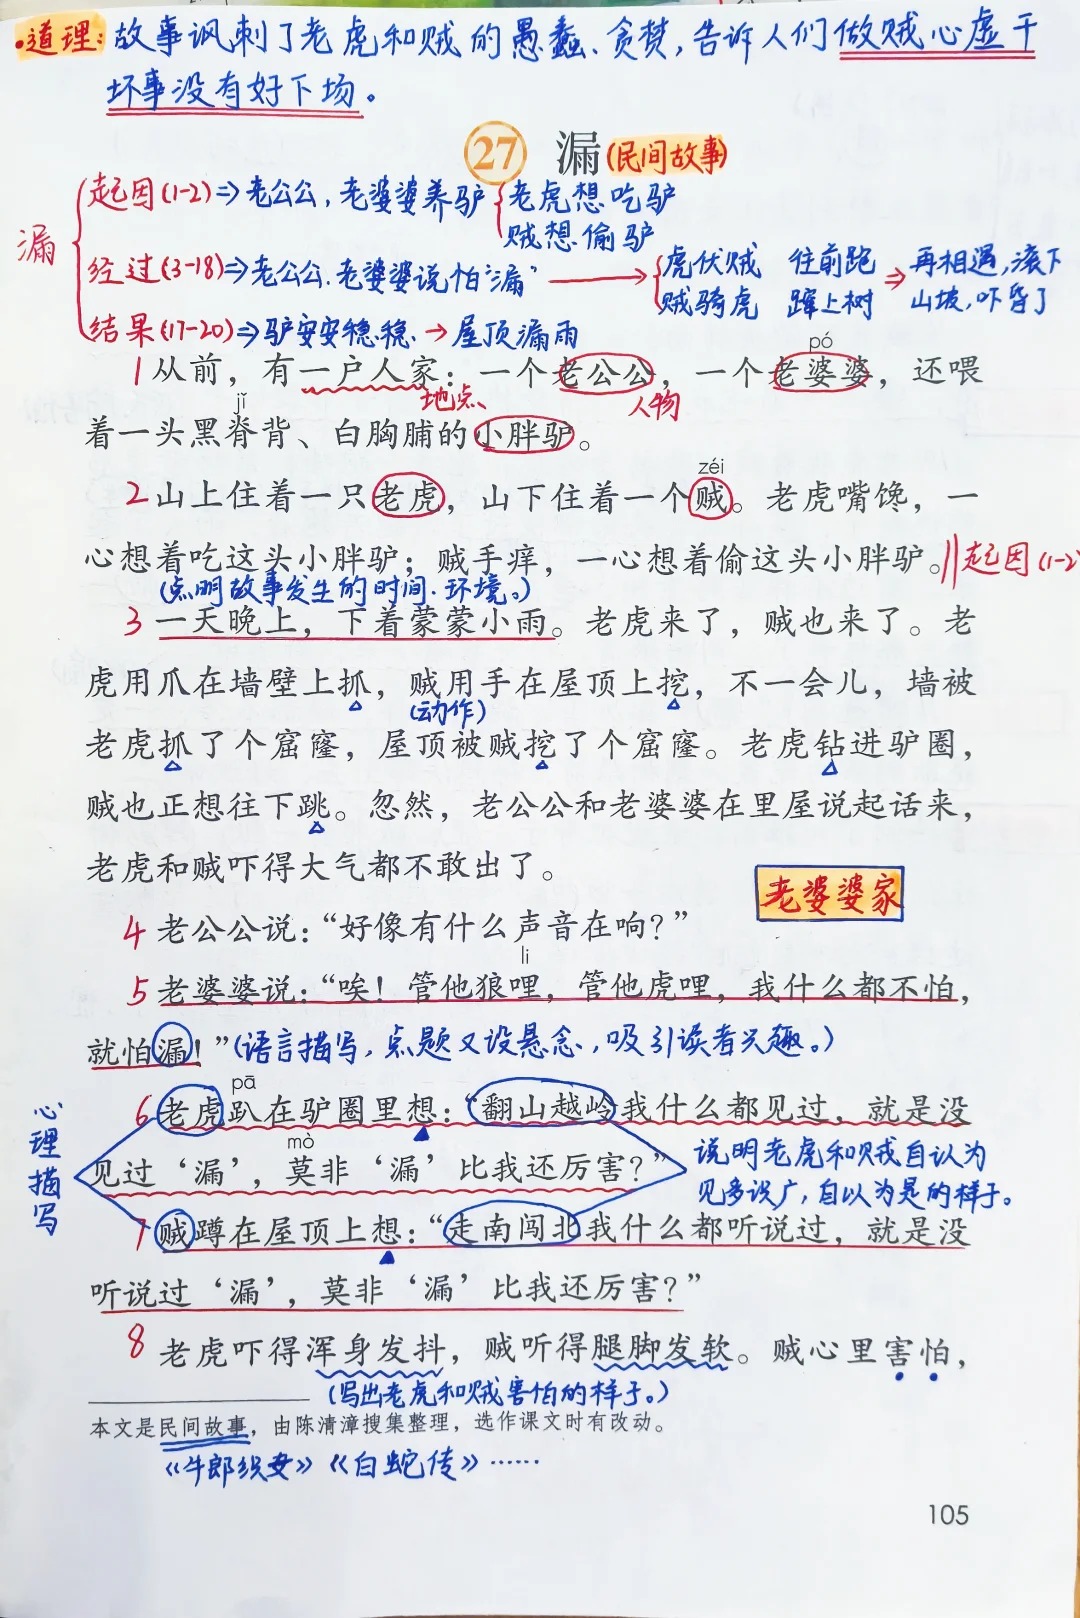 ·道理：故事讽刺了老虎和贼的愚蠢、贪婪，告诉人们做贼心虚干
坏事没有好下场。
27 漏(民间故事)
漏
起因(1-2)⇒老公公，老婆婆养驴
老虎想吃驴
贼想偷驴
经过(3-18)⇒老公公.老婆婆说怕“漏”→
虎伏贼 往前跑
贼骑虎 蹿上树
⇒再相遇，滚下
山坡，吓昏了
结果(17-20)⇒驴安安稳稳→屋顶漏雨
pó
1从前，有一户人家：一个老公公，一个老婆婆，还喂
地点、 人物
jǐ
着一头黑脊背、白胸脯的小胖驴。
zéi
2山上住着一只老虎，山下住着一个贼。老虎嘴馋，一
心想着吃这头小胖驴；贼手痒，一心想着偷这头小胖驴。‖起因(1-2
(点明故事发生的时间.环境。)
3一天晚上，下着蒙蒙小雨。老虎来了，贼也来了。老
虎用爪在墙壁上抓，贼用手在屋顶上挖，不一会儿，墙被
(动作)
老虎抓了个窟窿，屋顶被贼挖了个窟窿。老虎钻进驴圈，
贼也正想往下跳。忽然，老公公和老婆婆在里屋说起话来，
老虎和贼吓得大气都不敢出了。
老婆婆家
4老公公说：“好像有什么声音在响？”
li
5老婆婆说：“唉！管他狼哩，管他虎哩，我什么都不怕，
就怕漏！”(语言描写，点题又设悬念，吸引读者兴趣。)
pā
6老虎趴在驴圈里想：“翻山越岭我什么都见过，就是没
mò
见过‘漏’，莫非‘漏’比我还厉害？”
心理描写
说明老虎和贼自认为
见多识广，自以为是的样子。
7贼蹲在屋顶上想：“走南闯北我什么都听说过，就是没
听说过‘漏’，莫非‘漏’比我还厉害？”
8老虎吓得浑身发抖，贼听得腿脚发软。贼心里害怕，
(写出老虎和贼害怕的样子。)
本文是民间故事，由陈清漳搜集整理，选作课文时有改动。
《牛郎织女》《白蛇传》……
105